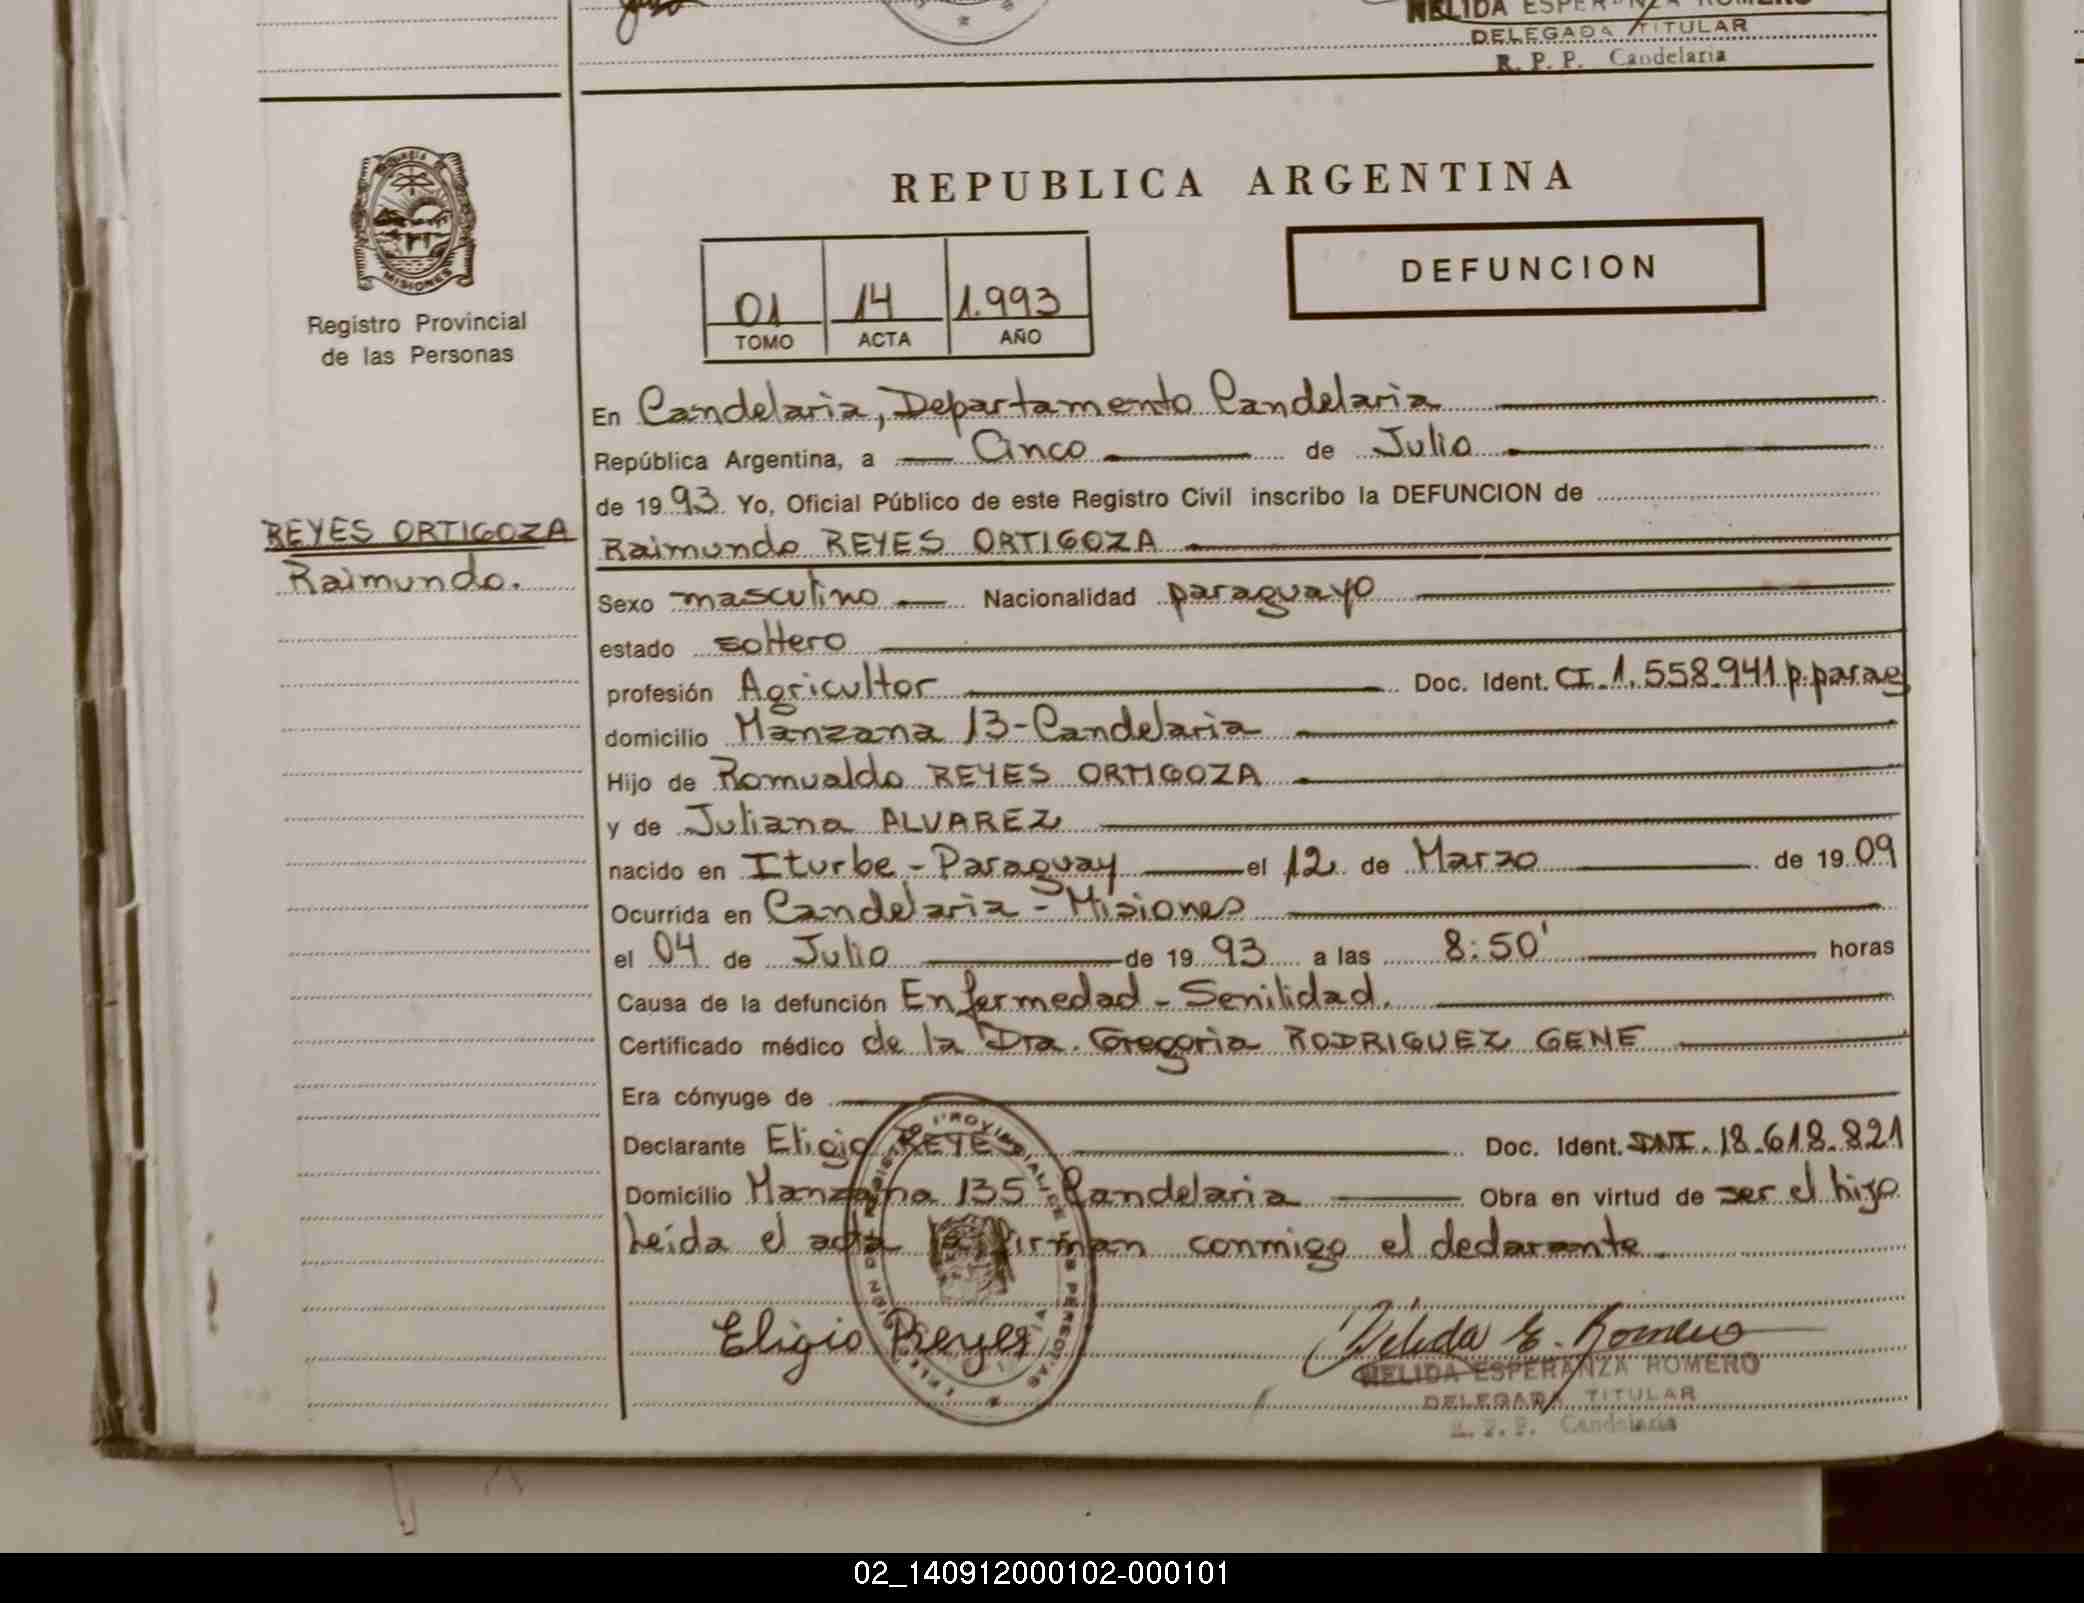 NELIDA ESPERANZA ROMERO
DELEGADA TITULAR
R. P. P. Candelaria
MISIONES
Registro Provincial
de las Personas
REPUBLICA ARGENTINA
DEFUNCION
01 14 1.993
TOMO ACTA AÑO
En Candelaria, Departamento Candelaria
República Argentina, a Cinco de Julio
de 19 93 Yo, Oficial Público de este Registro Civil inscribo la DEFUNCION de
REYES ORTIGOZA
Raimundo.
Raimundo REYES ORTIGOZA
Sexo masculino Nacionalidad paraguayo
estado soltero
profesión Agricultor Doc. Ident. CI. 1.558.941 p.parag
domicilio Manzana 13-Candelaria
Hijo de Romualdo REYES ORTIGOZA
y de Juliana ALVAREZ
nacido en Iturbe - Paraguay el 12 de Marzo de 19 09
Ocurrida en Candelaria - Misiones
el 04 de Julio de 19 93 a las 8:50' horas
Causa de la defunción Enfermedad - Senilidad.
Certificado médico de la Dra. Gregoria RODRIGUEZ GENE
Era cónyuge de
Declarante Eligio REYES Doc. Ident. DNI. 18.618.821
Domicilio Manzana 135 Candelaria Obra en virtud de ser el hijo
Leída el acta la firman conmigo el declarante
Eligio Reyes
Nelida E. Romero
NELIDA ESPERANZA ROMERO
DELEGADA TITULAR
R. P. P. Candelaria
02_140912000102-000101